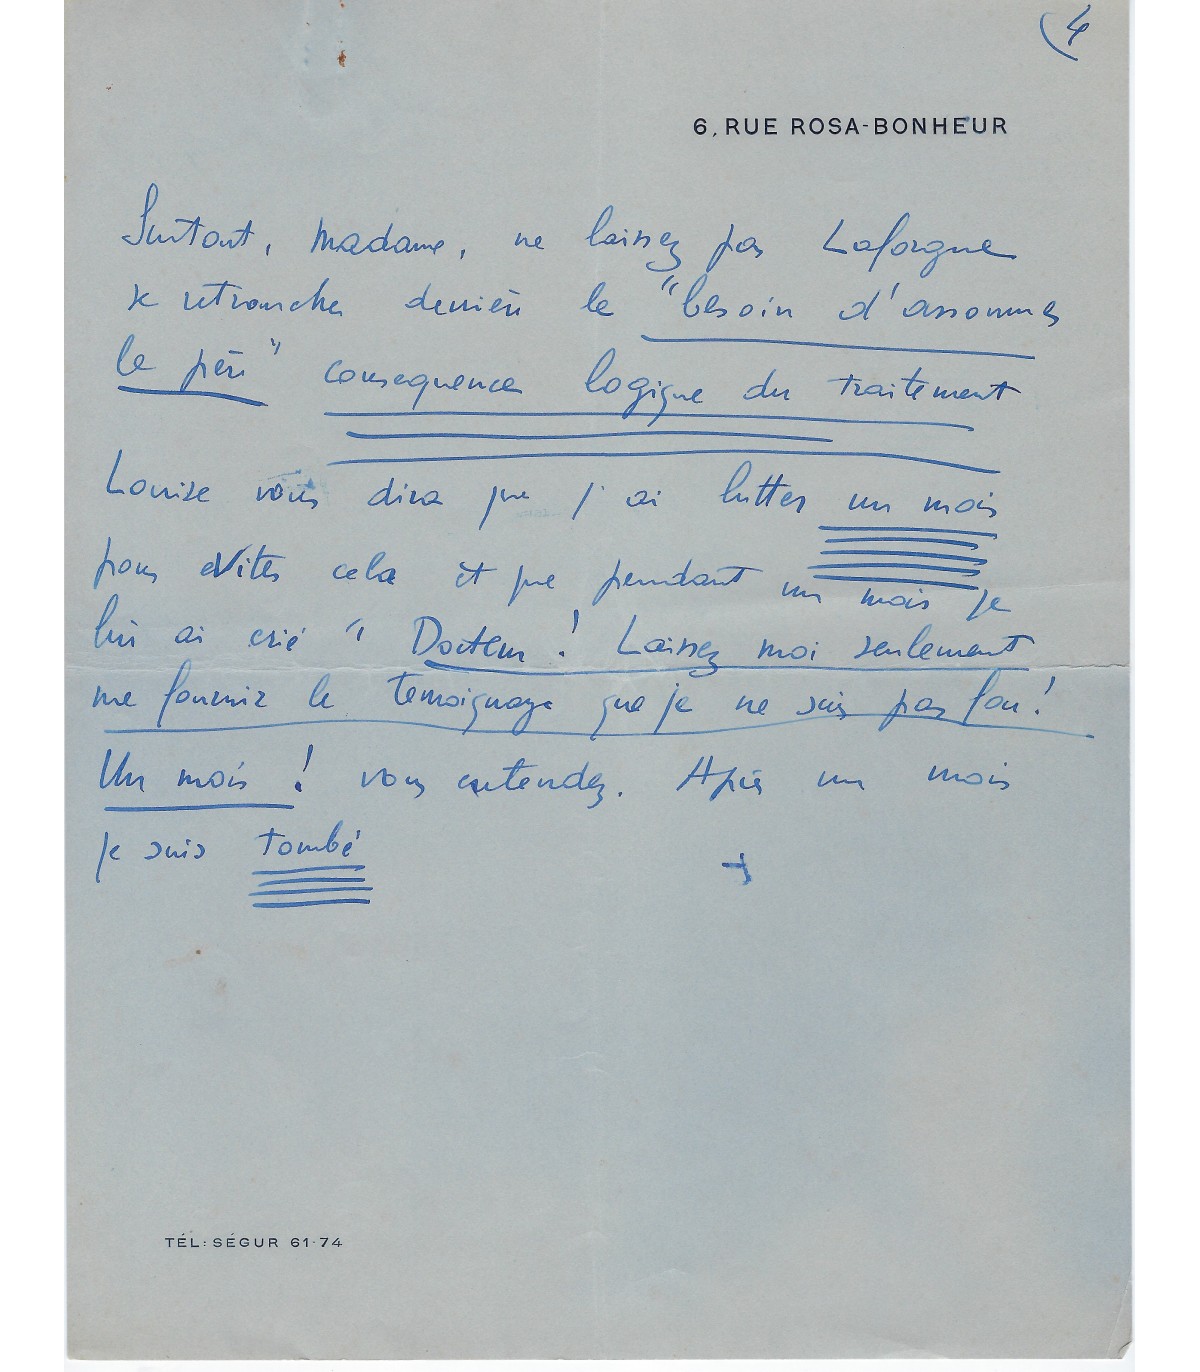 4
6, RUE ROSA-BONHEUR
Surtout, Madame, ne laissez pas Laforgue
se retrancher derrière le "besoin d'assommer
le père" consequence logique du traitement
Louise vous dira que j'ai lutter un mois
pour eviter cela et que pendant un mois je
lui ai crié " Docteur! Laissez moi seulement
me fournir le temoignage que je ne suis pas fou!
Un mois! vous entendez. Après un mois
je suis tombé
TÉL: SÉGUR 61-74